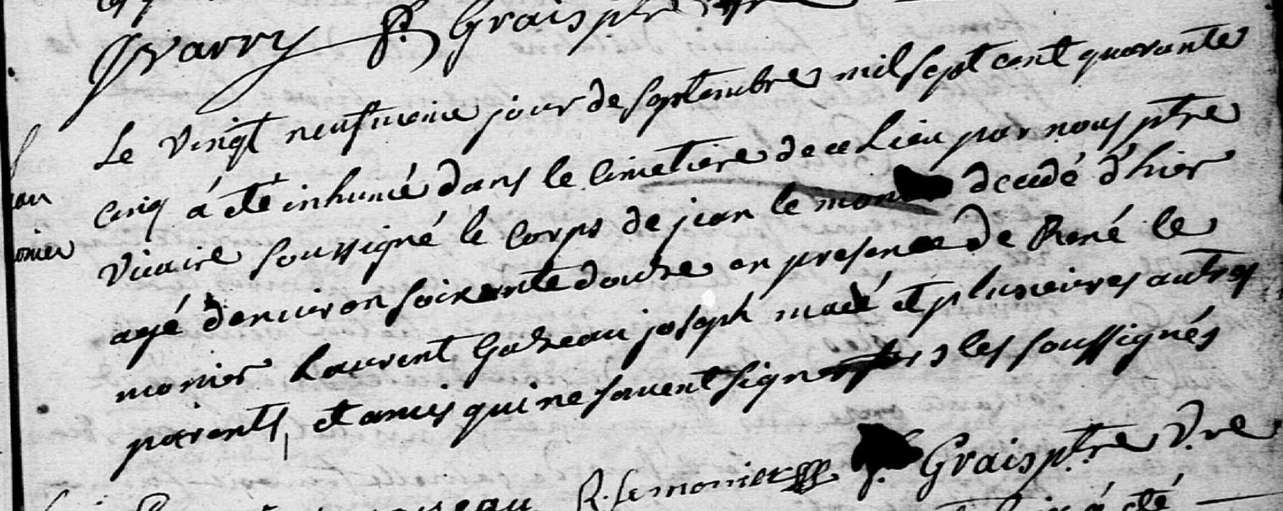 Varry f. Grais ptre
Le vingt neufvieme jour de septembre mil sept cent quarante
cinq á eté inhumé dans le cimetiere de ce lieu par nous ptre
vicaire soussigné le corps de jean le decedé d'hier
agé denviron soixante douze en presence de René le
monier Laurent Gazeau joseph macé et plusieurs autres
parents, et amis qui ne savent signer les soussignés
R. Lemonier f. Grais ptre V.re
á eté